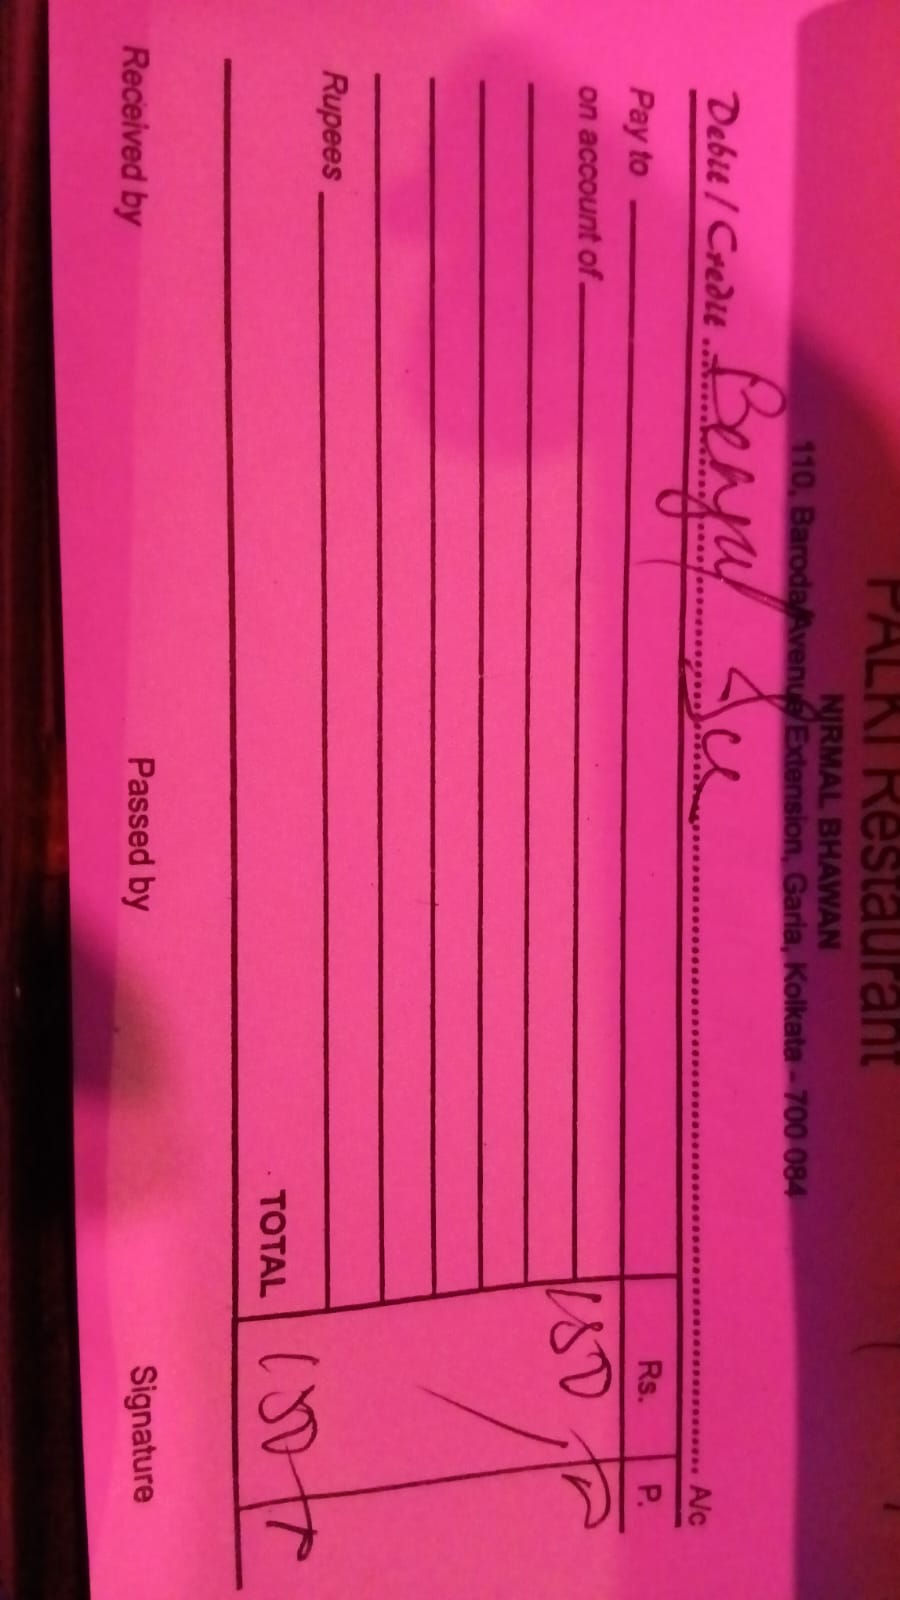 PALKI Restaurant
NIRMAL BHAWAN
110, Baroda Avenue Extension, Garia, Kolkata - 700 084
Debit / Credit ........ A/c
Pay to Rs. P.
on account of 150
Rupees
TOTAL 150
Received by Passed by Signature